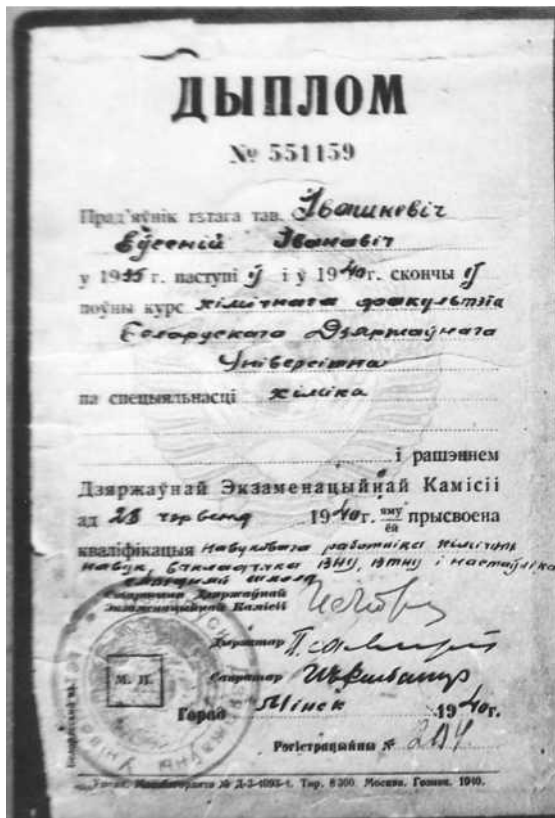 ДЫПЛОМ
№ 551159
Прад'яўнік гэтага тав. Івашкевіч
Еўсеній Іванавіч
у 1935 г. наступіў і ў 1940 г. скончыў
поўны курс хімічнага факультэта
Беларускага Дзяржаўнага
Універсітэта
па спецыяльнасці хіміка
і рашэннем
Дзяржаўнай Экзаменацыйнай Камісіі
ад 28 чэрвеня 1940 г. яму/ёй прысвоена
кваліфікацыя навуковага работніка хімічных
навук, выкладчыка ВНУ, ВТНУ і настаўніка
сярэдняй школы
Старшыня Дзяржаўнай
Экзаменацыйнай Камісіі
Дырэктар
Сакратар
М. П.
Горад Мінск 1940 г.
Рэгістрацыйны № 204
Тир. 8300 Москва. Гознак. 1940.